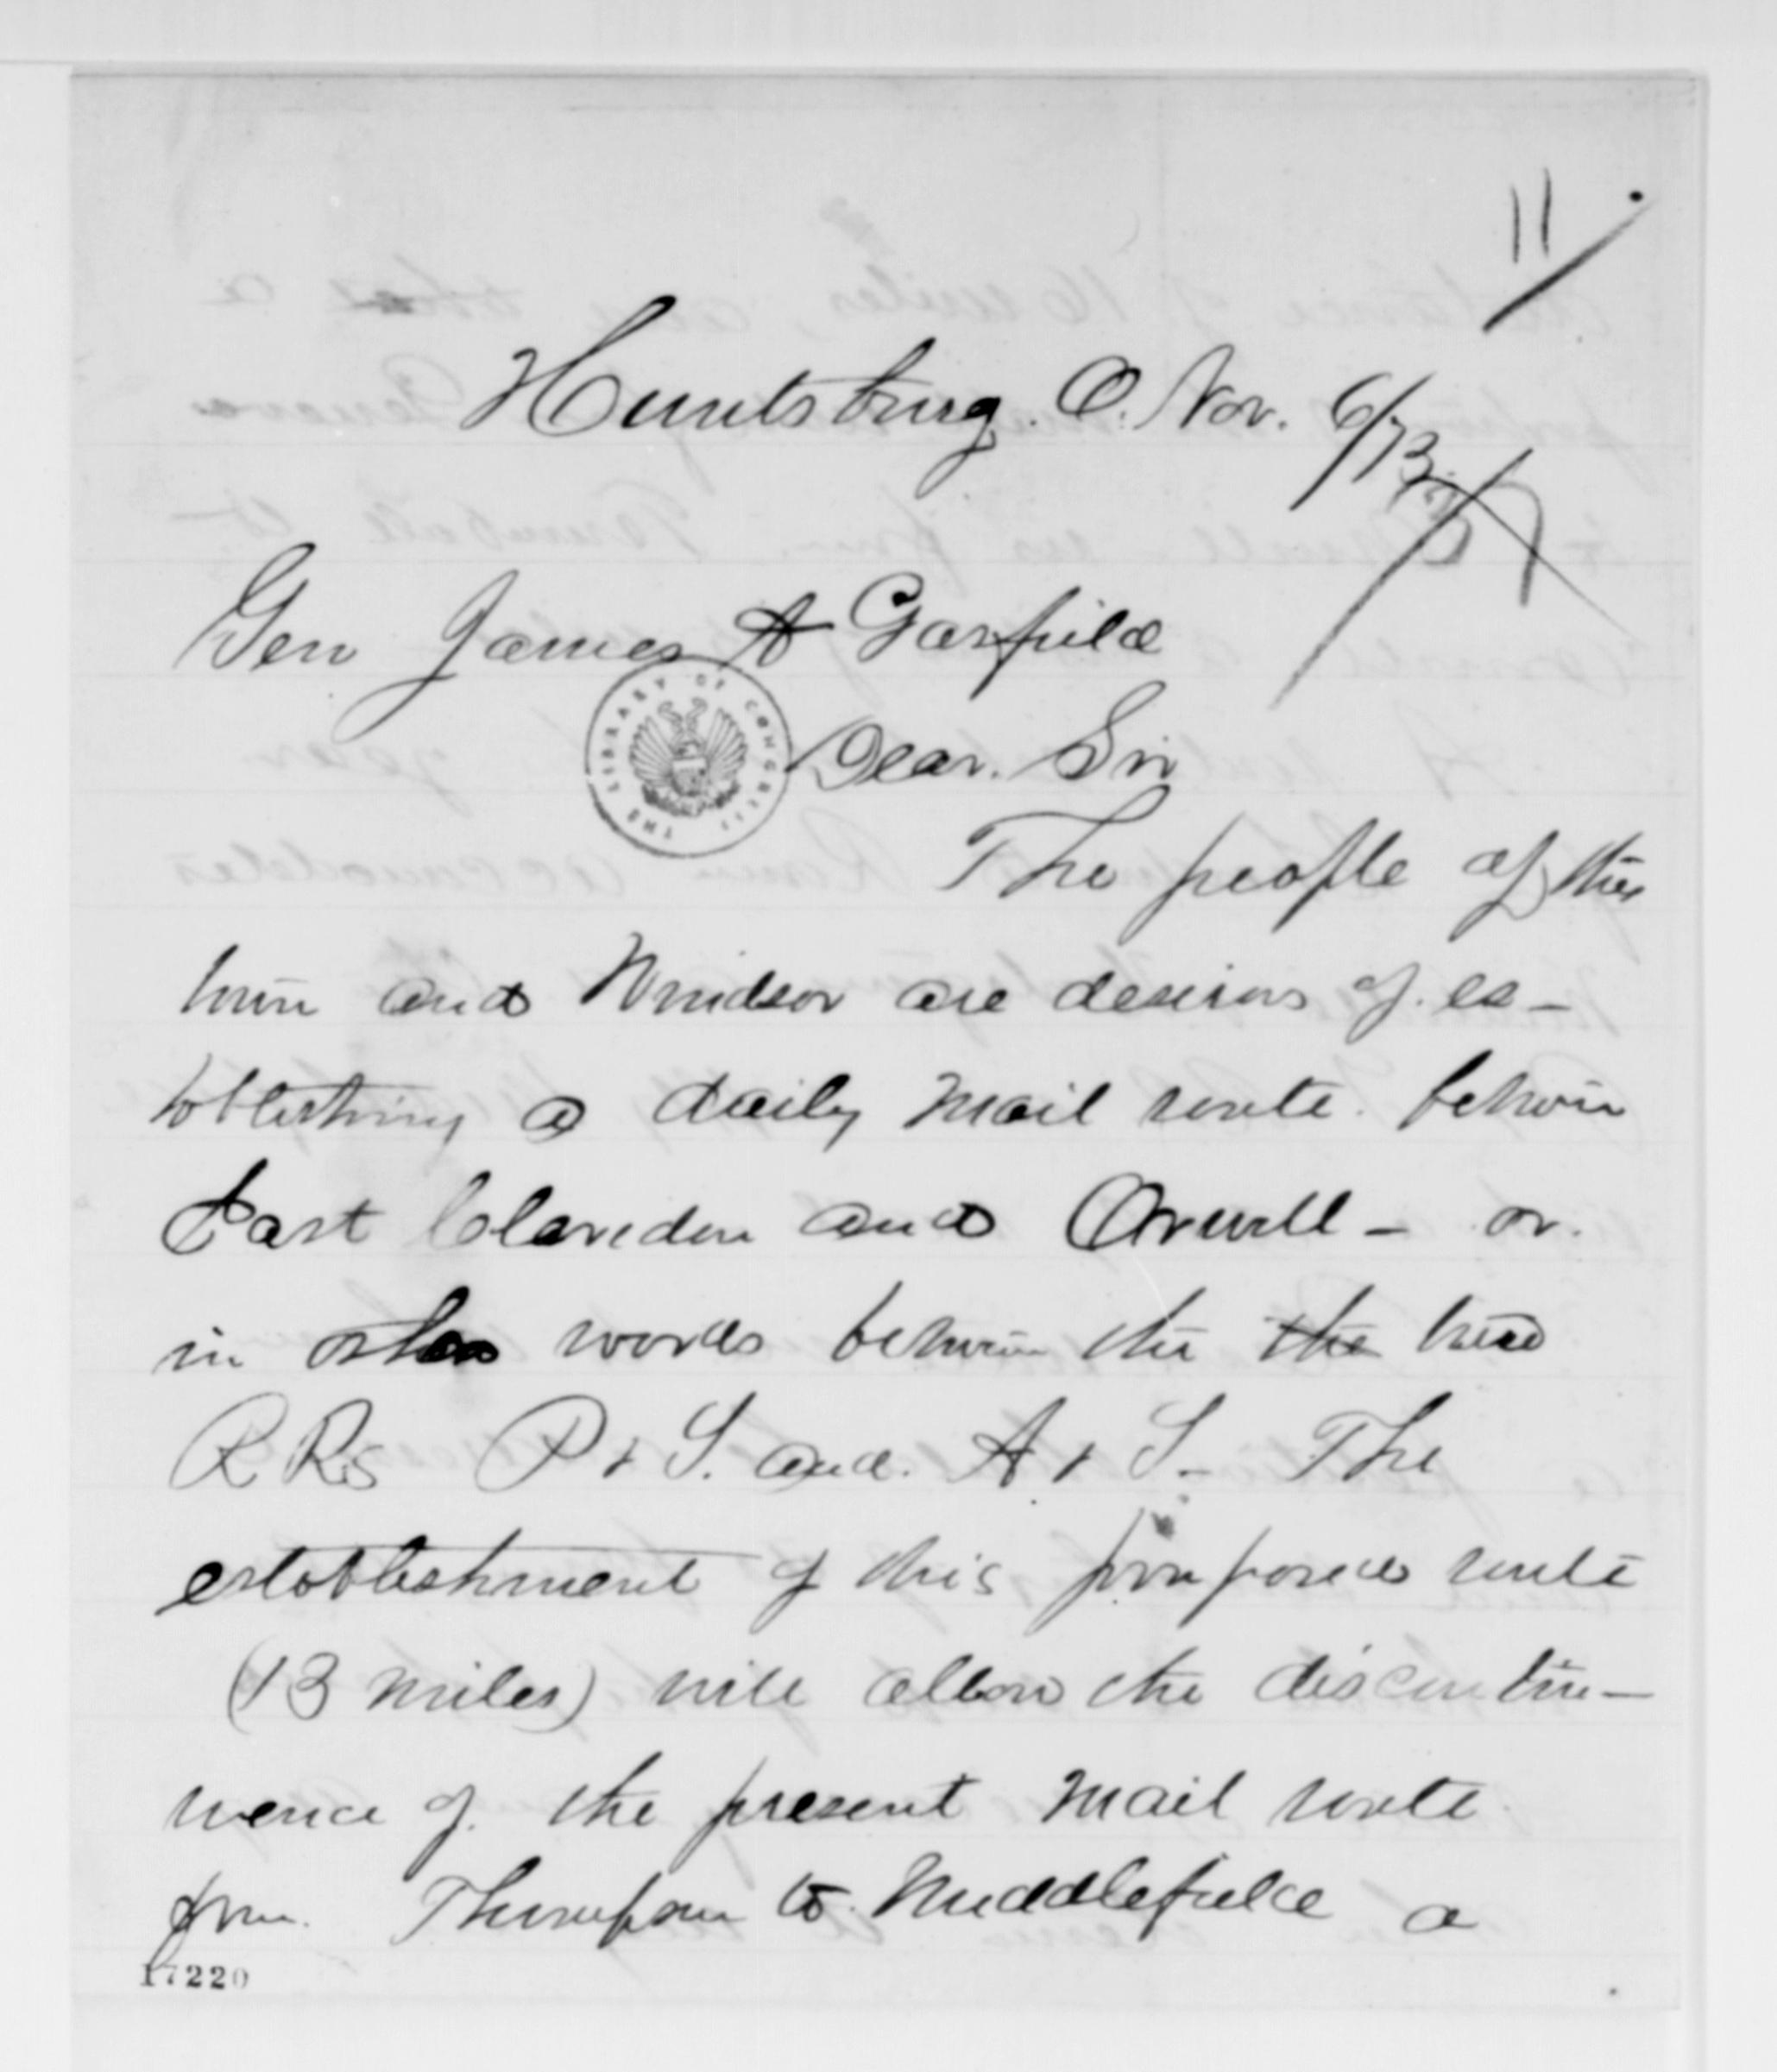 11
Huntsburg. O. Nov. 6/73
Gen James A Garfield
THE LIBRARY OF CONGRESS
Dear. Sir
The people of this
town and Windsor are desirous of es-
tablishing a daily mail route. between
East Claridon and Orwell - or.
in other words between the the two
R Rs P & S. and. A & S- The
establishment of this proposed route
(13 miles) will allow the discontin-
uence of. the present mail route
from. Thompson to. Middlefield a
17220